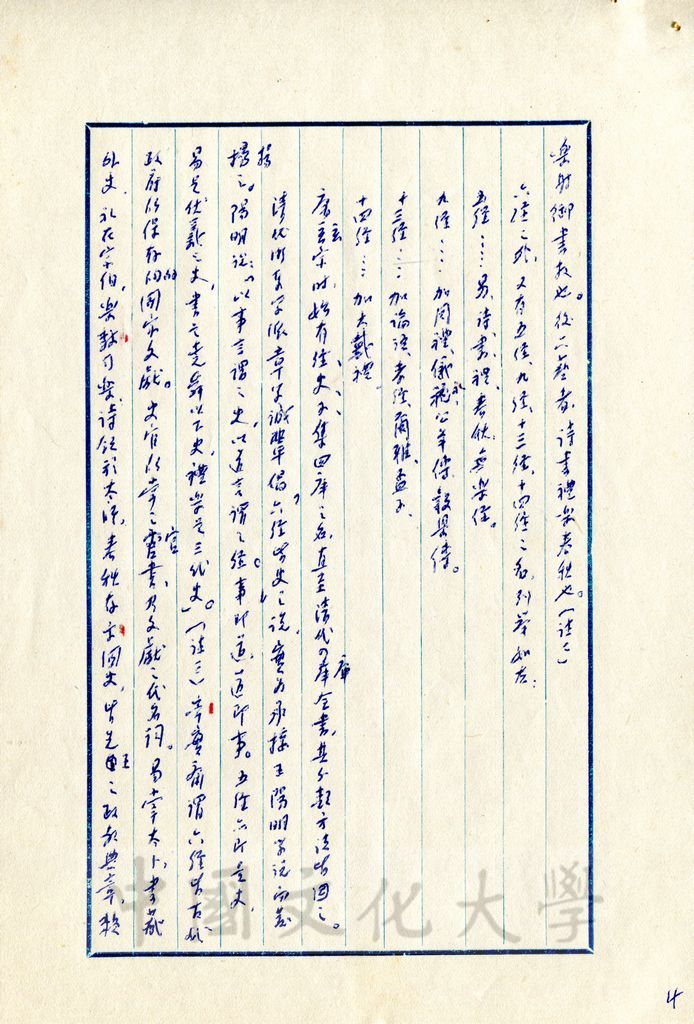 樂射御書數也。後六藝者，詩書禮樂春秋也。（註二）
六經之外，又有五經、九經、十三經、十四經之名，列舉如左：
五經……易、詩、書、禮、春秋，無樂經。
九經……加周禮、儀禮、公羊傳、穀梁傳。
十三經……加論語、孝經、爾雅、孟子、
十四經……加大戴禮。
唐玄宗時，始有經、史、子、集四庫之名，直至清代四庫全書，其分類方法皆因之。
清代浙東學派章學誠舉倡「六經皆史」之說，實為承接王陽明學說而發
揚之。陽明說：「以事言謂之史，以道言謂之經。事即道，道即事。五經亦即是史，
易是伏羲之史，書是堯舜以下史，禮樂是三代史。」（註三）章實齋謂六經皆古代
政府所保存的國家文獻。史官所掌之官書，乃文獻之代名詞。易掌太卜，書藏
外史，禮在宗伯，樂隸司樂，詩領於太師，春秋存於國史，皆先王之政教典章，
中國文化大學
4